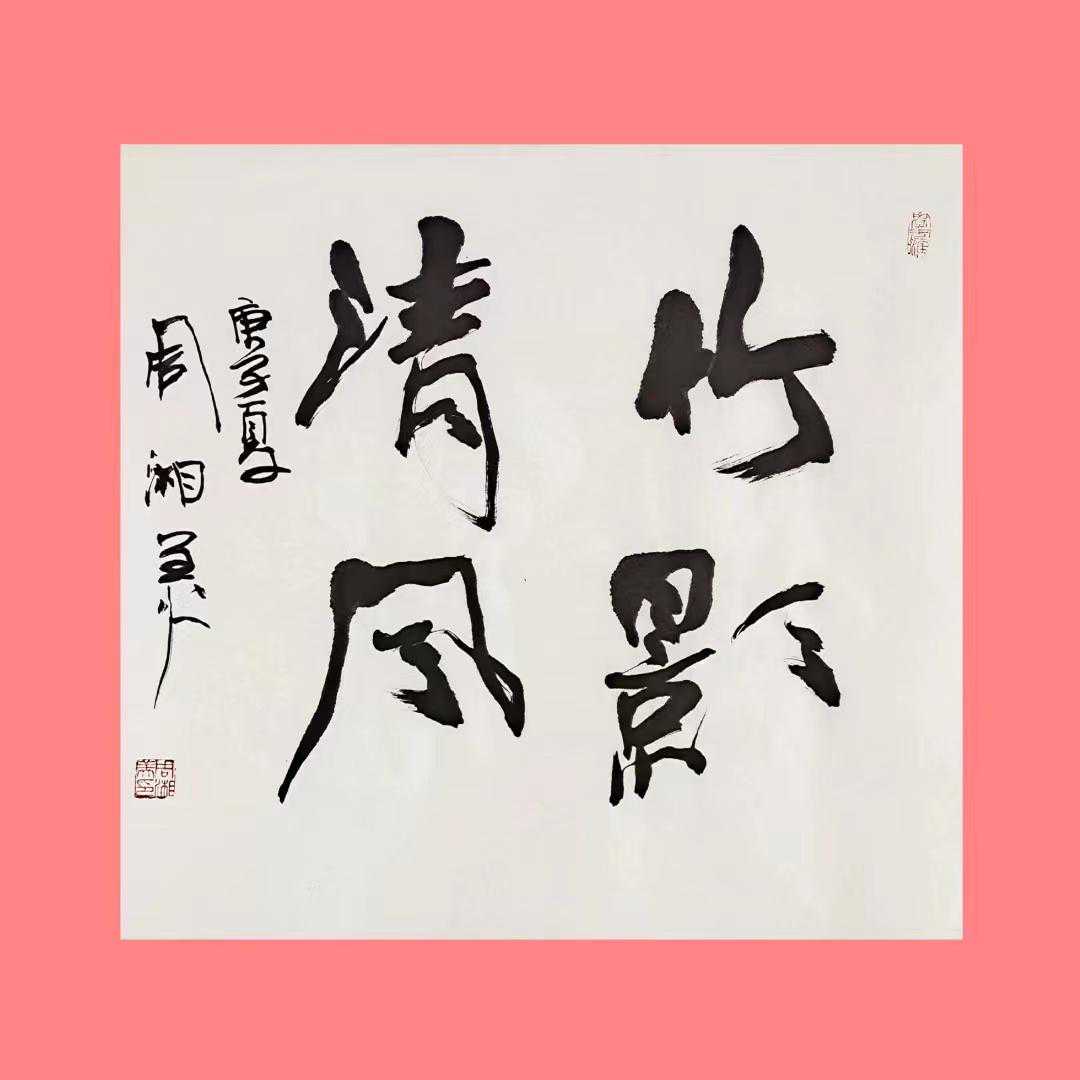 竹影
清风
庚子夏
周湘